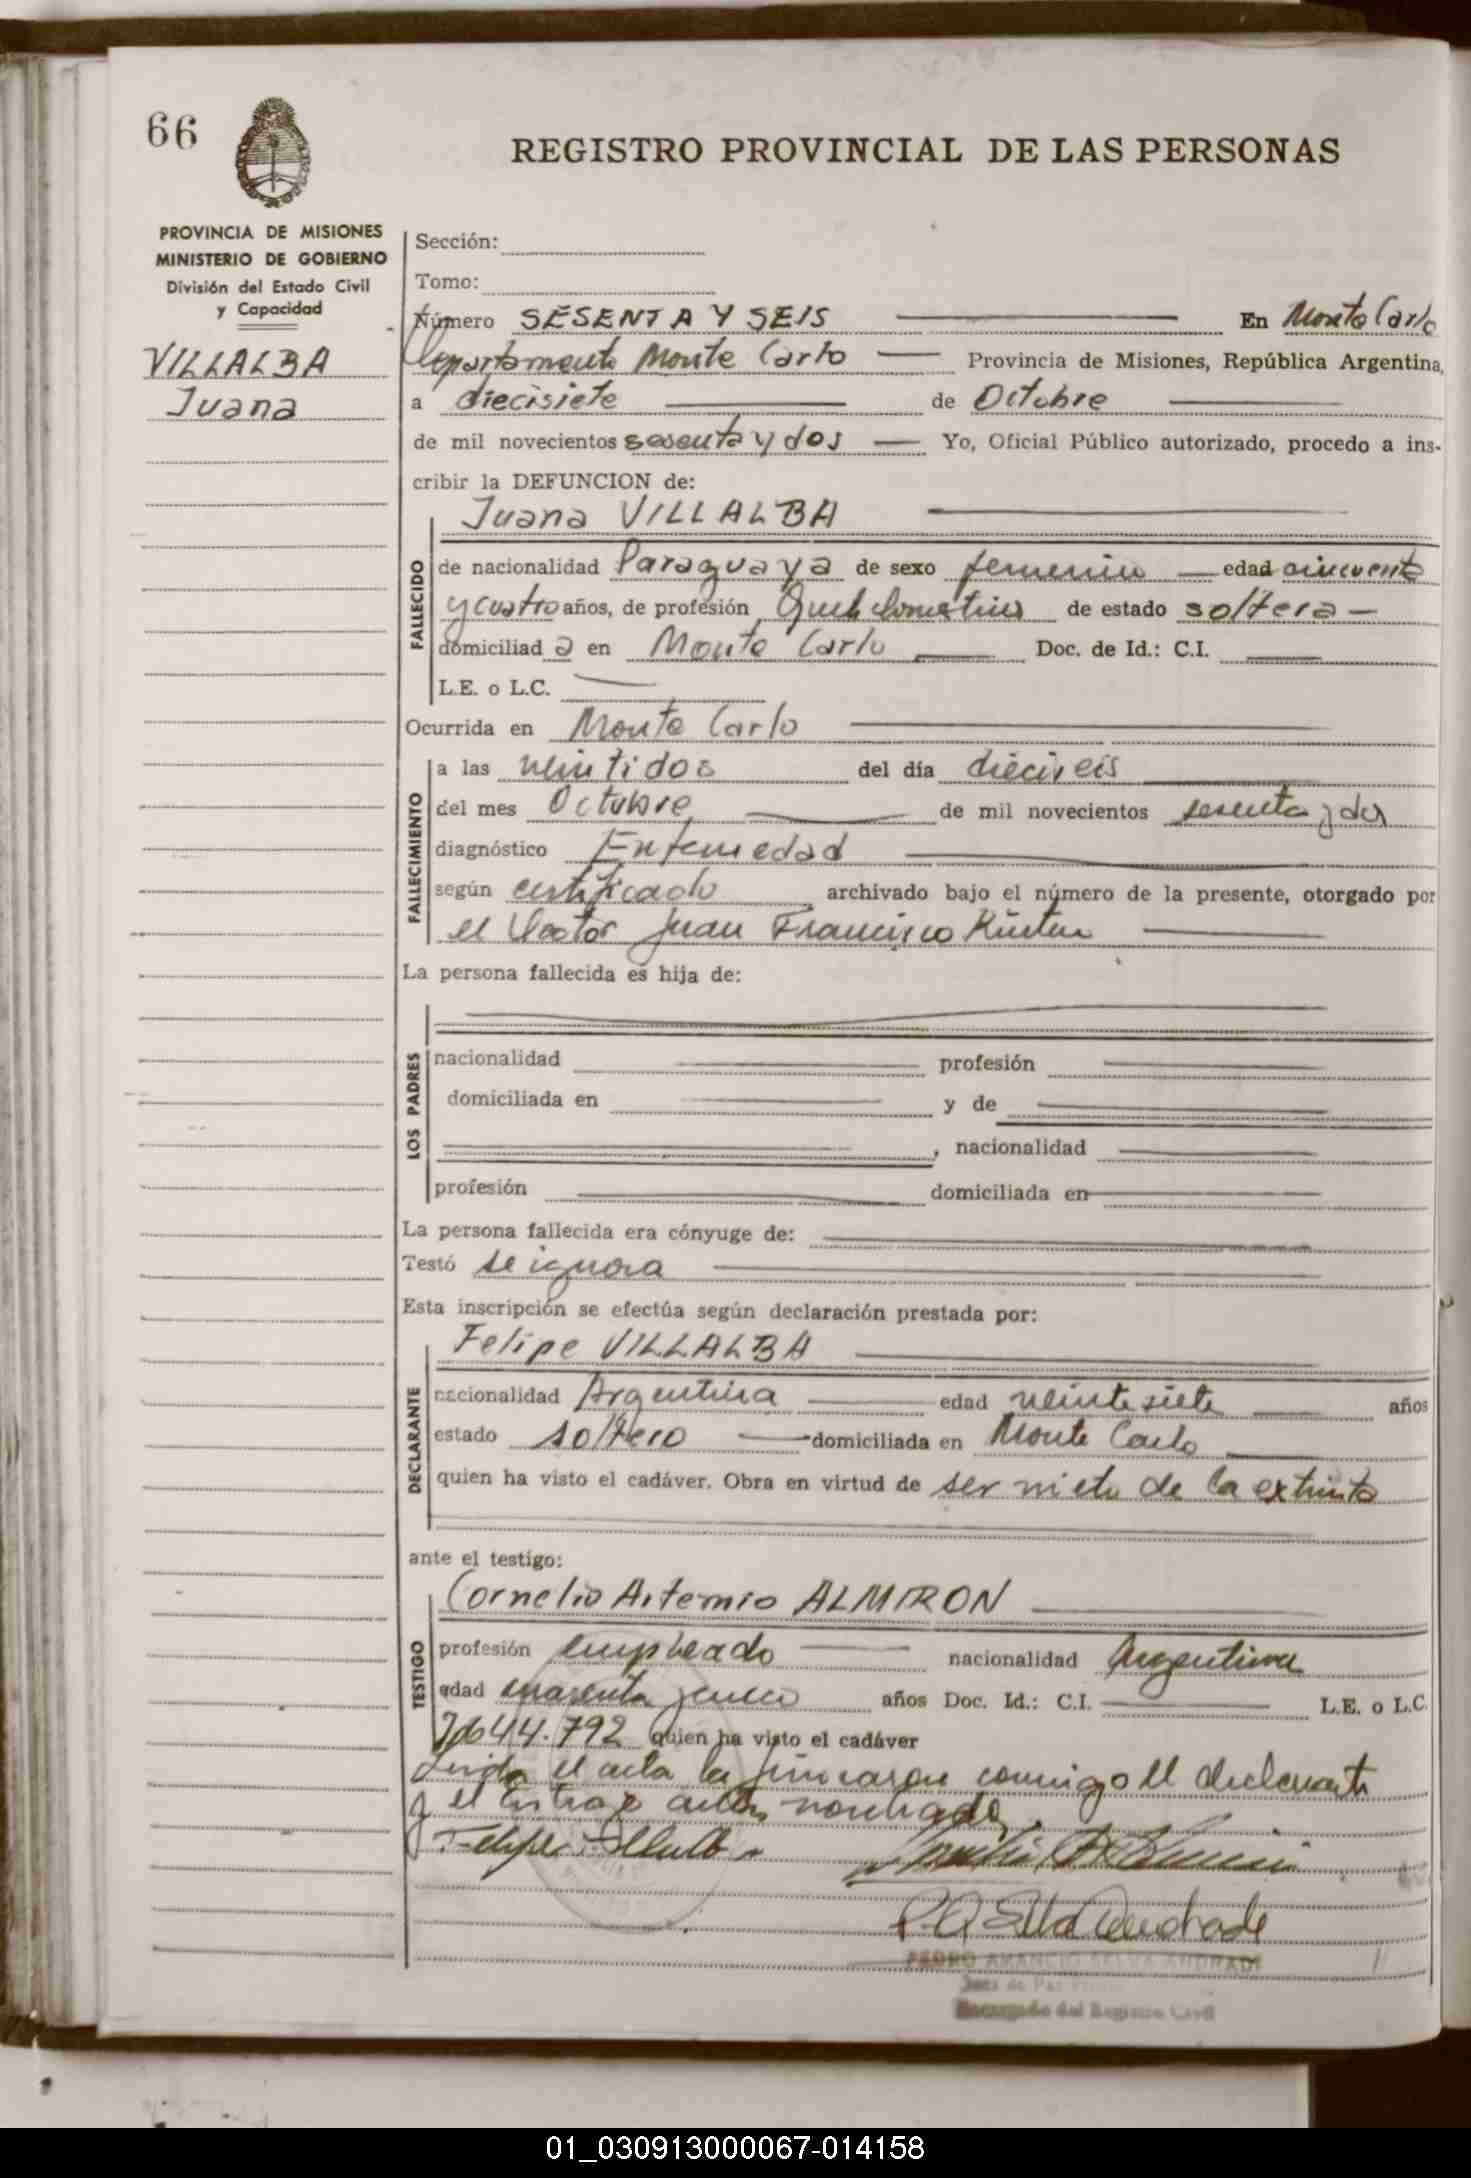 66
REGISTRO PROVINCIAL DE LAS PERSONAS
PROVINCIA DE MISIONES
MINISTERIO DE GOBIERNO
División del Estado Civil
y Capacidad
VILLALBA
Juana
Sección:
Tomo:
Número SESENTA Y SEIS En Monte Carlo
Departamento Monte Carlo Provincia de Misiones, República Argentina,
a diecisiete de Octubre
de mil novecientos sesenta y dos Yo, Oficial Público autorizado, procedo a ins-
cribir la DEFUNCION de:
Juana VILLALBA
FALLECIDO
de nacionalidad Paraguaya de sexo femenino edad cincuenta
y cuatro años, de profesión Queh. domésticos de estado soltera
domiciliad a en Monte Carlo Doc. de Id.: C.I.
L.E. o L.C.
Ocurrida en Monte Carlo
FALLECIMIENTO
a las veintidos del día dieciseis
del mes Octubre de mil novecientos sesenta y dos
diagnóstico Enfermedad
según certificado archivado bajo el número de la presente, otorgado por
el Doctor Juan Francisco
La persona fallecida es hija de:
LOS PADRES
nacionalidad profesión
domiciliada en y de
, nacionalidad
profesión domiciliada en
La persona fallecida era cónyuge de:
Testó se ignora
Esta inscripción se efectúa según declaración prestada por:
Felipe VILLALBA
DECLARANTE
nacionalidad Argentina edad veintesiete años
estado soltero domiciliada en Monte Carlo
quien ha visto el cadáver. Obra en virtud de ser nieto de la extinta
ante el testigo:
Cornelio Artemio ALMIRON
TESTIGO
profesión empleado nacionalidad Argentina
edad cuarenta y cinco años Doc. Id.: C.I. L.E. o L.C.
7.644.792 quien ha visto el cadáver
Leida el acta la firmaron conmigo el declarante
y el testigo antes nombrado
Felipe Villalba
PEDRO AMANCIO SELVA ANDRADE
Juez de Paz
Encargado del Registro Civil
01_030913000067-014158